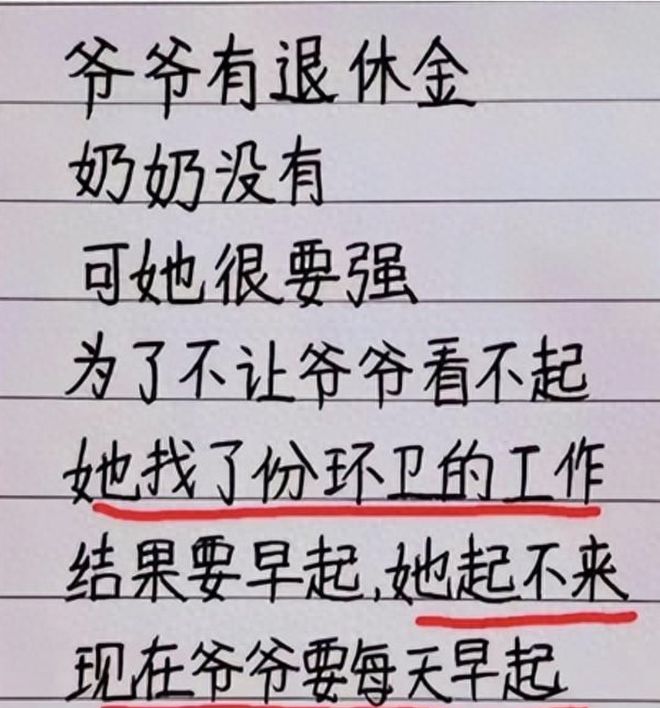 爷爷有退休金
奶奶没有
可她很要强
为了不让爷爷看不起
她找了份环卫的工作
结果要早起,她起不来
现在爷爷要每天早起